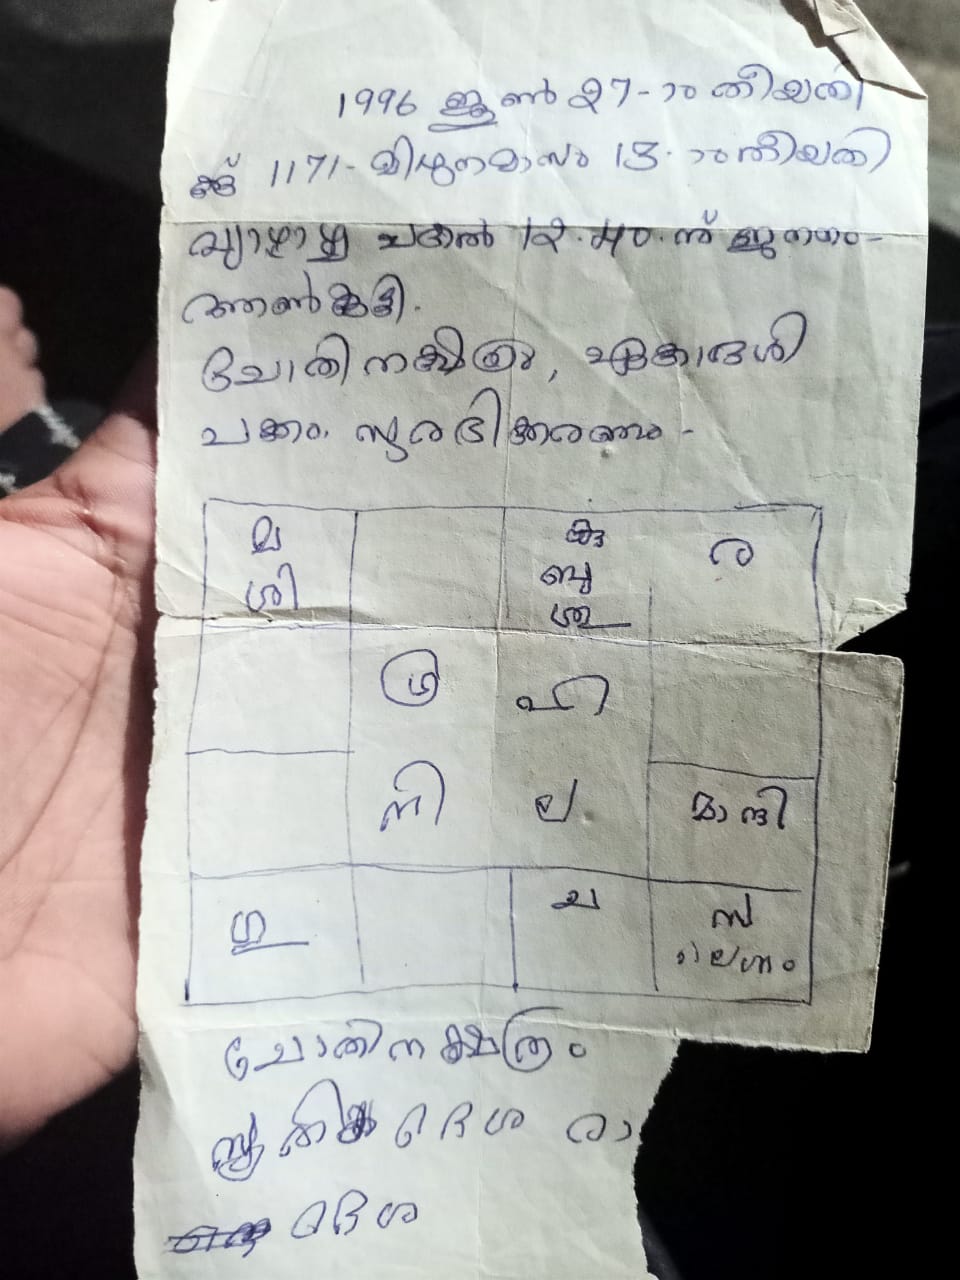 1996 ജൂൺ 27-ാം തീയതി
ക്ക് 1171- മിഥുനമാസം 13-ാം തീയതി
വ്യാഴാഴ്ച പകൽ 12.40.ന് ജനനം-
ആൺകുട്ടി.
ചോതി നക്ഷത്രം, ഏകാദശി
പക്കം. സുരഭിക്കരണം -
മ കു ര
ശി ബു
ശു
ഗ്ര ഹി
നി ല മാന്ദി
ഗു ച സ
ലഗ്നം
ചോതിനക്ഷത്രം
ദശ രാ
ദശ